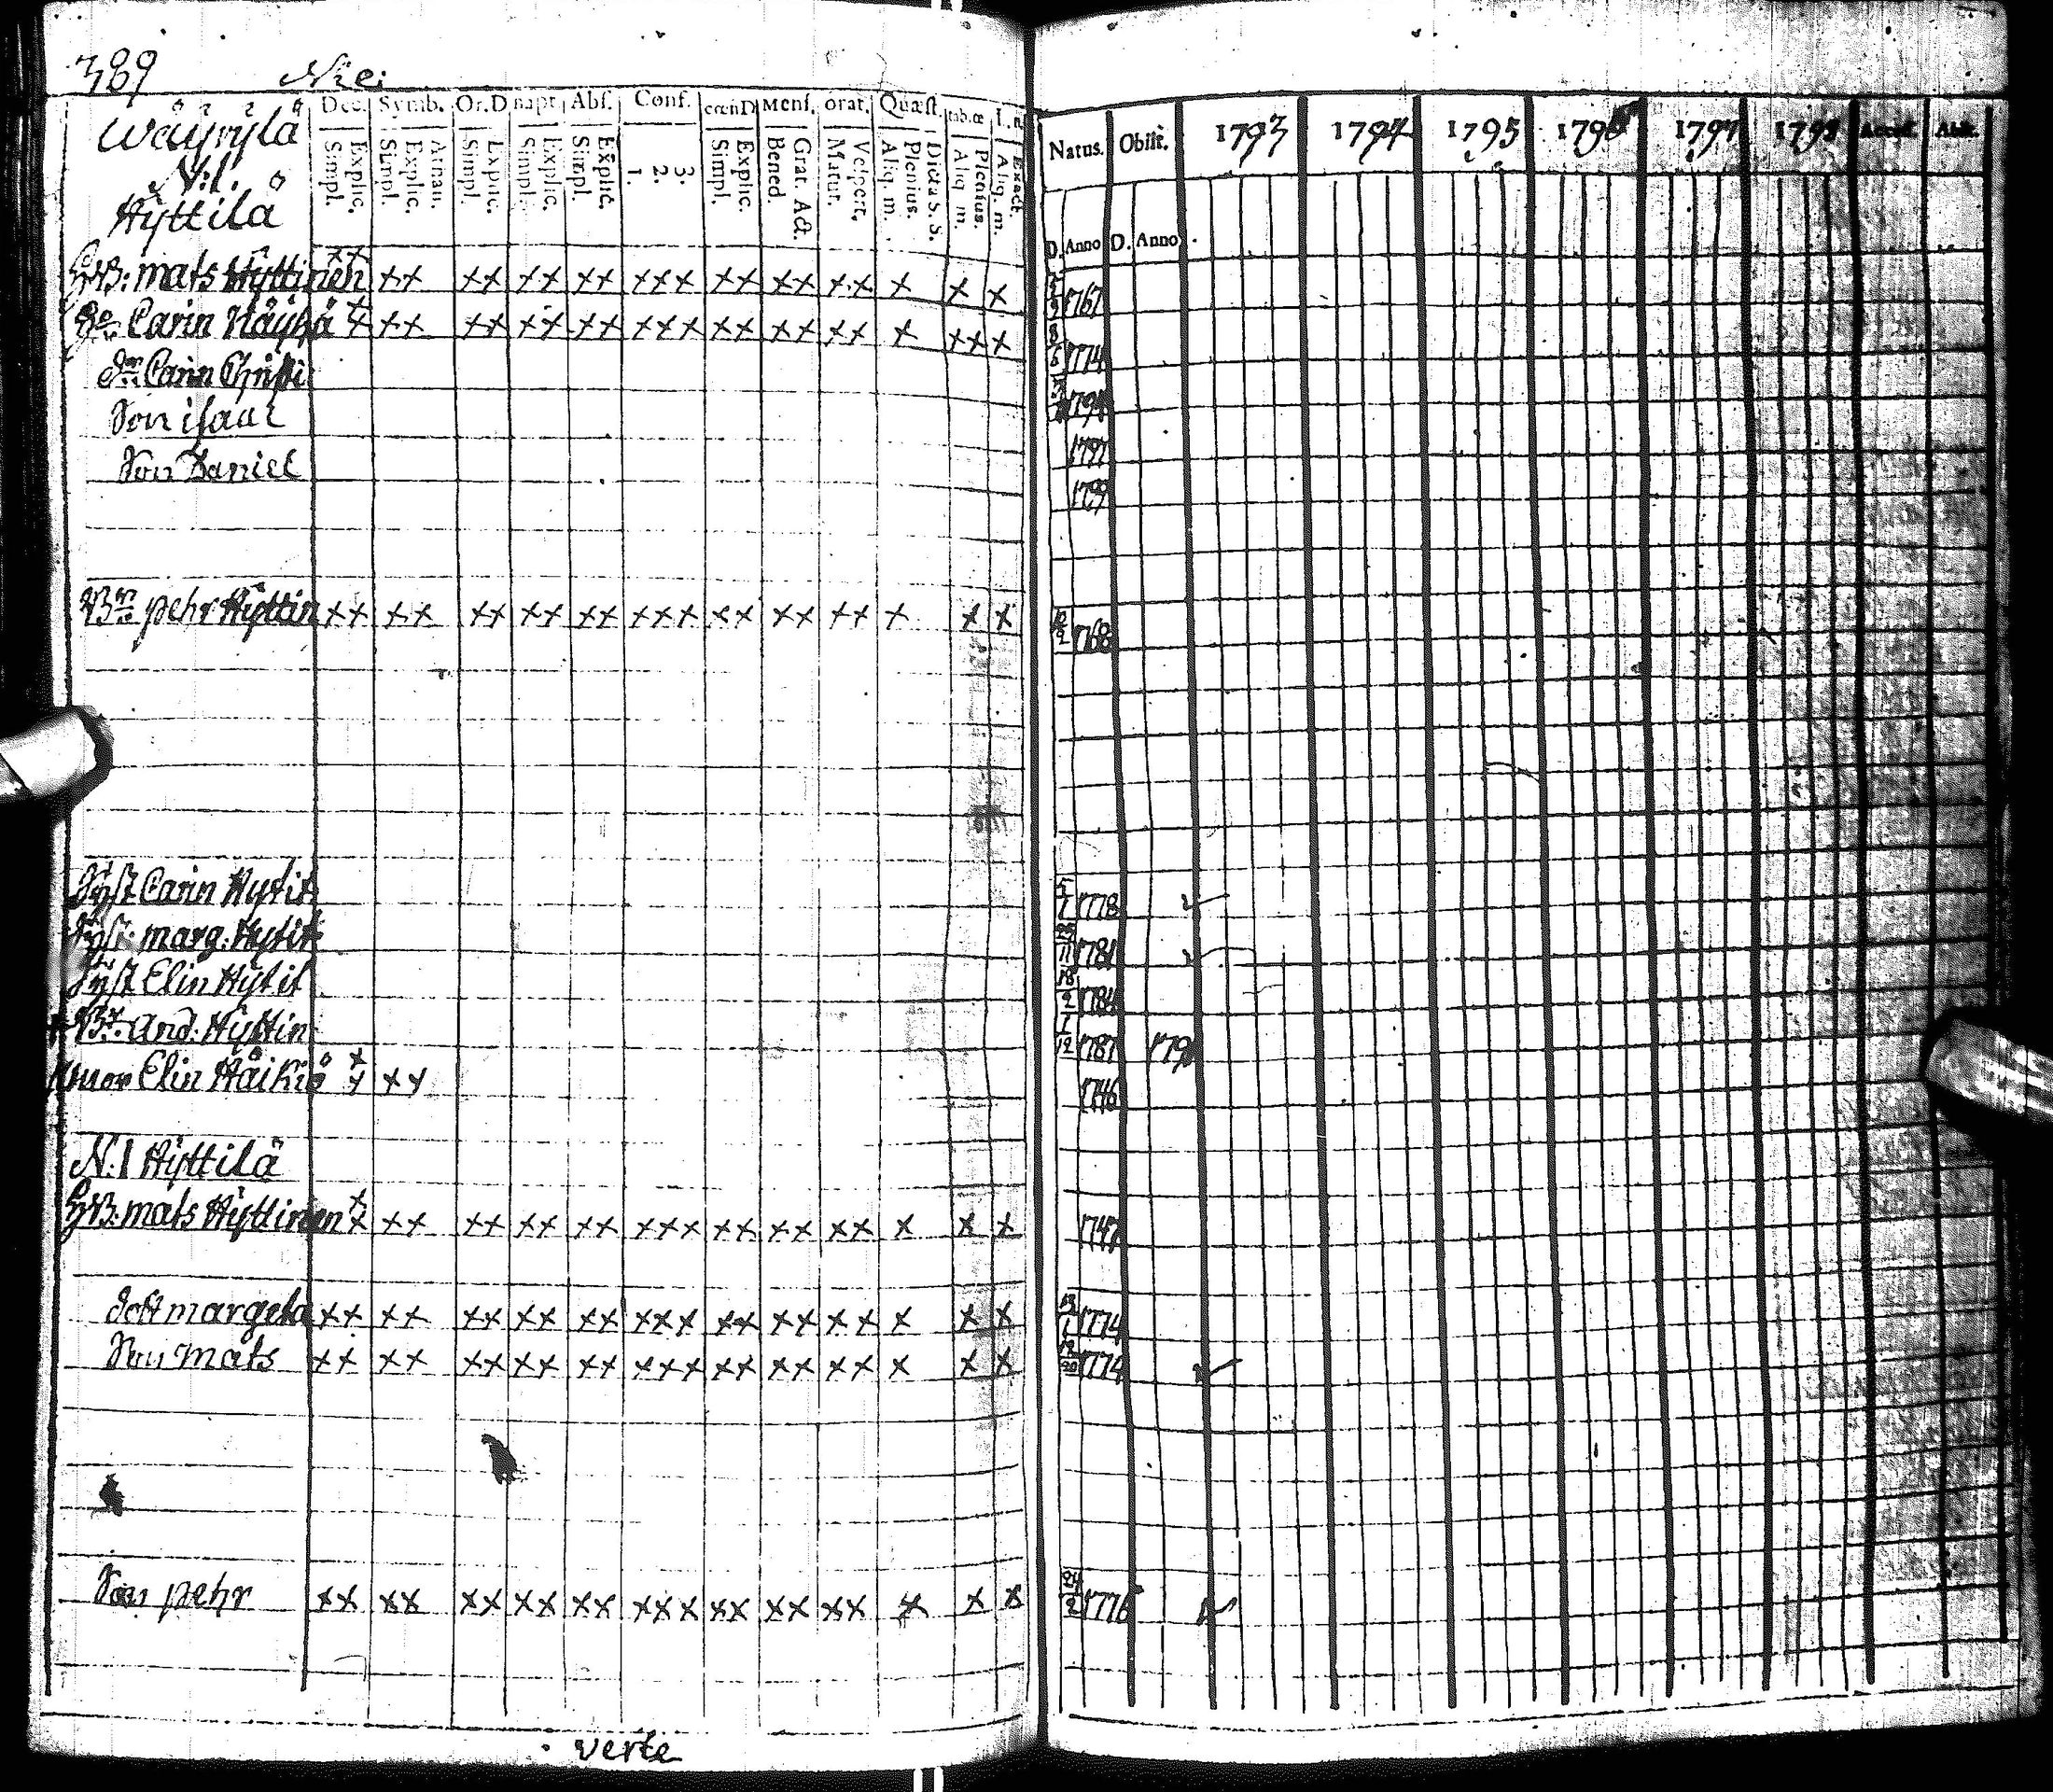 389 Nie:
Wäyrylä
N:1.
Hyttilä
Dec. Symb. Or.D Bapt. Abs. Conf. cœnD Mens. orat. Quæst. tab.œ
Simpl. Explic. Simpl. Explic. Athan. Simpl. Explic. Simpl. Explic. Simpl. Explic. 1. 2. 3. Simpl. Explic. Bened. Grat. Act. Matut. Vespert. Aliq. m. Plenius. Dicta S. S. Aliq. m. Plenius. Aliq. m. Exact.
Natus. Obiit. 1793 1794 1795 1796 1797 1798 Access. Abit.
D. Anno D. Anno
HB: mats Hyttinen xx xx xx xx xx xxx xx xx xx x x x 5/9 1767
Carin Näyhä xx xx xx xx xx xxx xx xx xx x xx x 8/6 1774
dr Carin Christi 1794
Son isaac 1797
Son Daniel 1799
Brn pehr Hyttin xx xx xx xx xx xxx xx xx xx x x x 1768
Syst Carin Hytit 5/1 1778
Syst. marg: Hytit 25/11 1781
Syst Elin Hytit 18/2 1784
Br. And: Hyttin 1/12 1787 179
muor Elin Häikiö xx xx 1746
N:1 Hyttilä
HB: mats Hyttinen xx xx xx xx xx xxx xx xx xx x x x 1747
dott margeta xx xx xx xx xx xxx xx xx xx x x x 13/1 1774
Son mats xx xx xx xx xx xxx xx xx xx x x x 12/20 1774
Son pehr xx xx xx xx xx xxx xx xx xx x x x 24/2 1776
verte